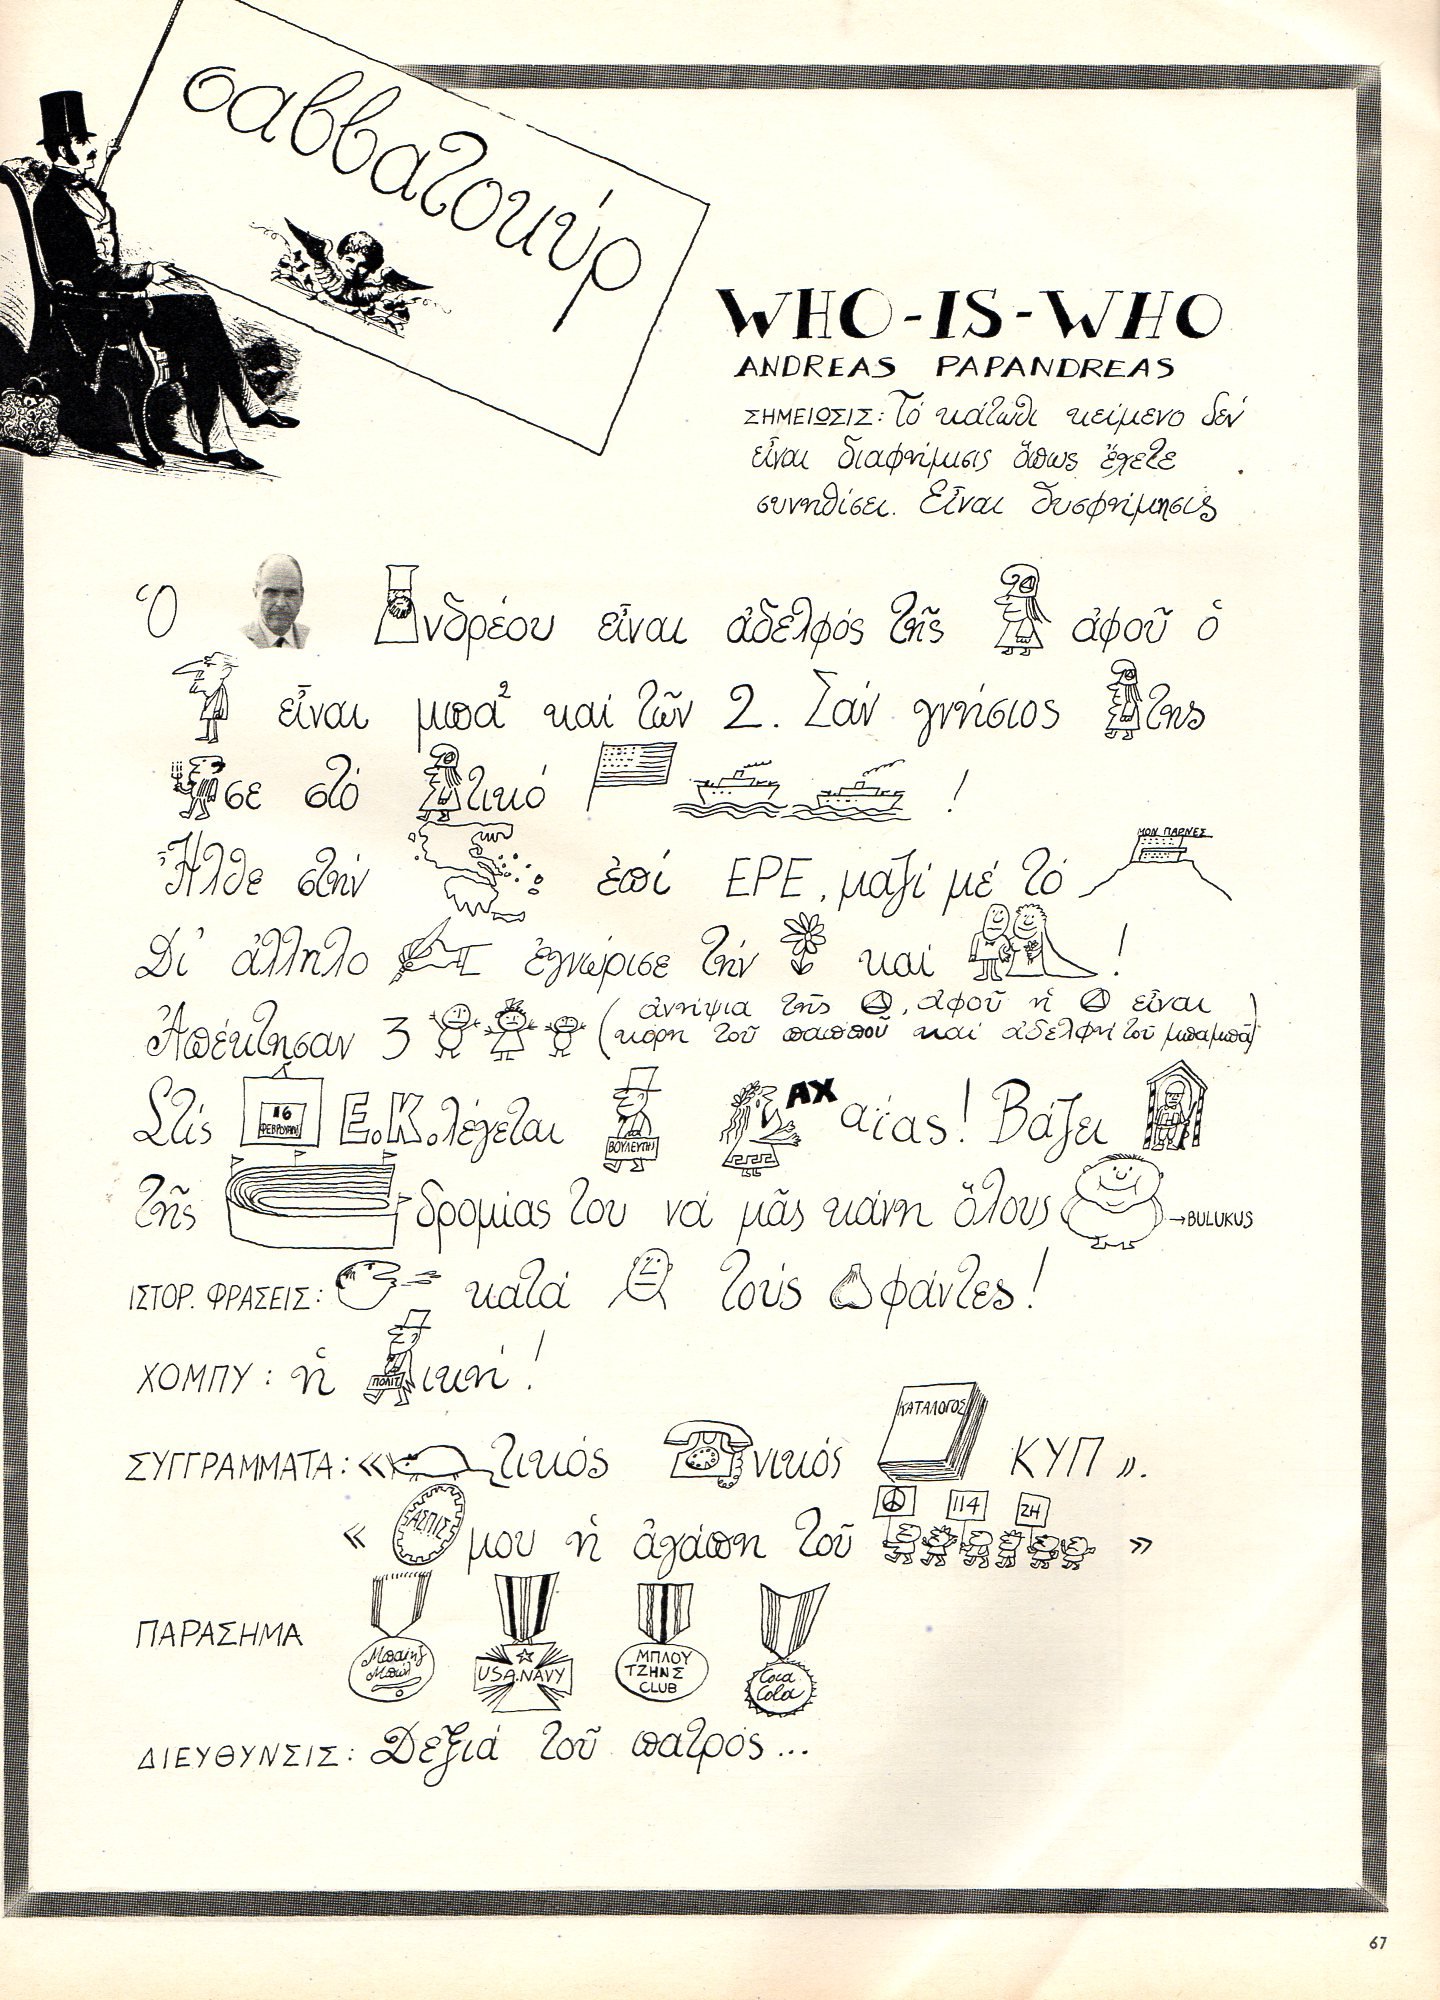 σαββατοκύρ
WHO-IS-WHO
ANDREAS PAPANDREAS
ΣΗΜΕΙΩΣΙΣ: Τό κάτωθι κείμενο δέν
εἶναι διαφήμισις ὅπως ἔχετε
συνηθίσει. Εἶναι δυσφήμησις
Ὁ νδρέου εἶναι ἀδελφός τῆς ἀφοῦ ὁ
εἶναι μπα² καί τῶν 2. Σάν γνήσιος της
σε στό τικό !
Ἦλθε στήν ἐπί ΕΡΕ, μαζί μέ τό ΜΟΝ ΠΑΡΝΕΣ
Δι' ἀλληλο ἐγνώρισε τήν καί !
Ἀπέκτησαν 3 (ἀνήψια τῆς Δ, ἀφοῦ ἡ Δ εἶναι
κόρη τοῦ παπποῦ καί ἀδελφή τοῦ μπαμπᾶ)
Στίς 16 ΦΕΒΡΟΥΑΡΙ Ε.Κ.λέγεται ΒΟΥΛΕΥΤΗΣ ΑΧ αΐας! Βάζει
τῆς δρομίας του νά μᾶς κάνη ὅλους →BULUKUS
ΙΣΤΟΡ. ΦΡΑΣΕΙΣ: κατά τούς φάντες!
ΧΟΜΠΥ: ἡ ΠΟΛΙΤ ική!
ΣΥΓΓΡΑΜΜΑΤΑ: « τικός νικός ΚΑΤΑΛΟΓΟΣ ΚΥΠ».
« ΑΣΠΙΣ μου ἡ ἀγάπη τοῦ 114 ΖΗ »
ΠΑΡΑΣΗΜΑ Μπαίηζ Μπώλ USA.NAVY ΜΠΛΟΥ ΤΖΗΝΣ CLUB Coca Cola
ΔΙΕΥΘΥΝΣΙΣ: Δεξιά τοῦ πατρός...
67